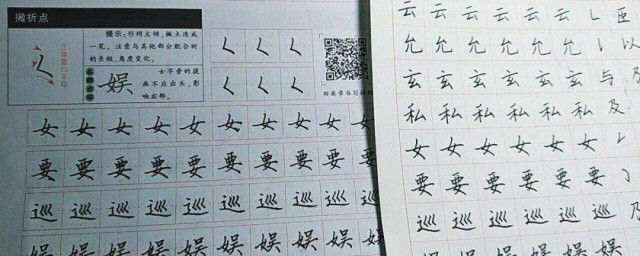 撇折点
提示：形稍左倾，撇点连成
一笔。注意与其他部分配合时
的长短、角度变化。
娱
女字旁的提
画不点出头，影
响右部。
く く く く
く く く
田英章书写视
女 女 女 女 女 女 女 女 女 女
要 要 要 要 要 要 要 要 要 要
巡 巡 巡 巡 巡 巡 巡 巡 巡 巡
娱 娱 娱 娱 娱 娱 娱 娱 娱
云 云 云 云 云 云 臣
允 允 允 允 允 允 以
玄 玄 玄 玄 玄 玄 与 及
私 私 私 私 私 私 私 及
女 女 女 女 女 女
要 要 要 要 要 要 要
巡 巡 巡 巡 巡 巡 巡
娱 娱 娱 娱 娱 娱